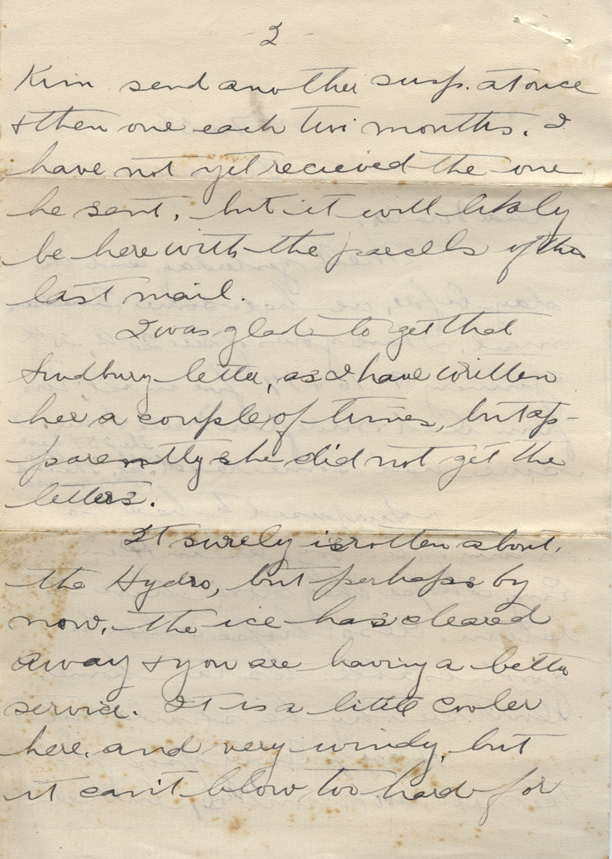 - 2 -
Kim send another susp. at once
& then one each two months. I
have not yet recieved the one
he sent, but it will likely
be here with the parcells of the
last mail.
I was glad to get that
Sudbury letter, as I have written
her a couple of times, but ap-
parently she did not get the
letters.
It surely is rotten about
the Hydro, but perhaps by
now, the ice has cleared
away & you are having a better
service. It is a little cooler
here, and very windy, but
it can't blow too hard for